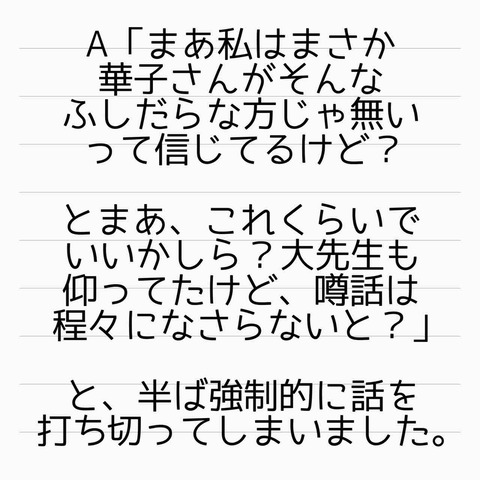 A「まあ私はまさか
華子さんがそんな
ふしだらな方じゃ無い
って信じてるけど？
とまあ、これくらいで
いいかしら？大先生も
仰ってたけど、噂話は
程々になさらないと？」
と、半ば強制的に話を
打ち切ってしまいました。